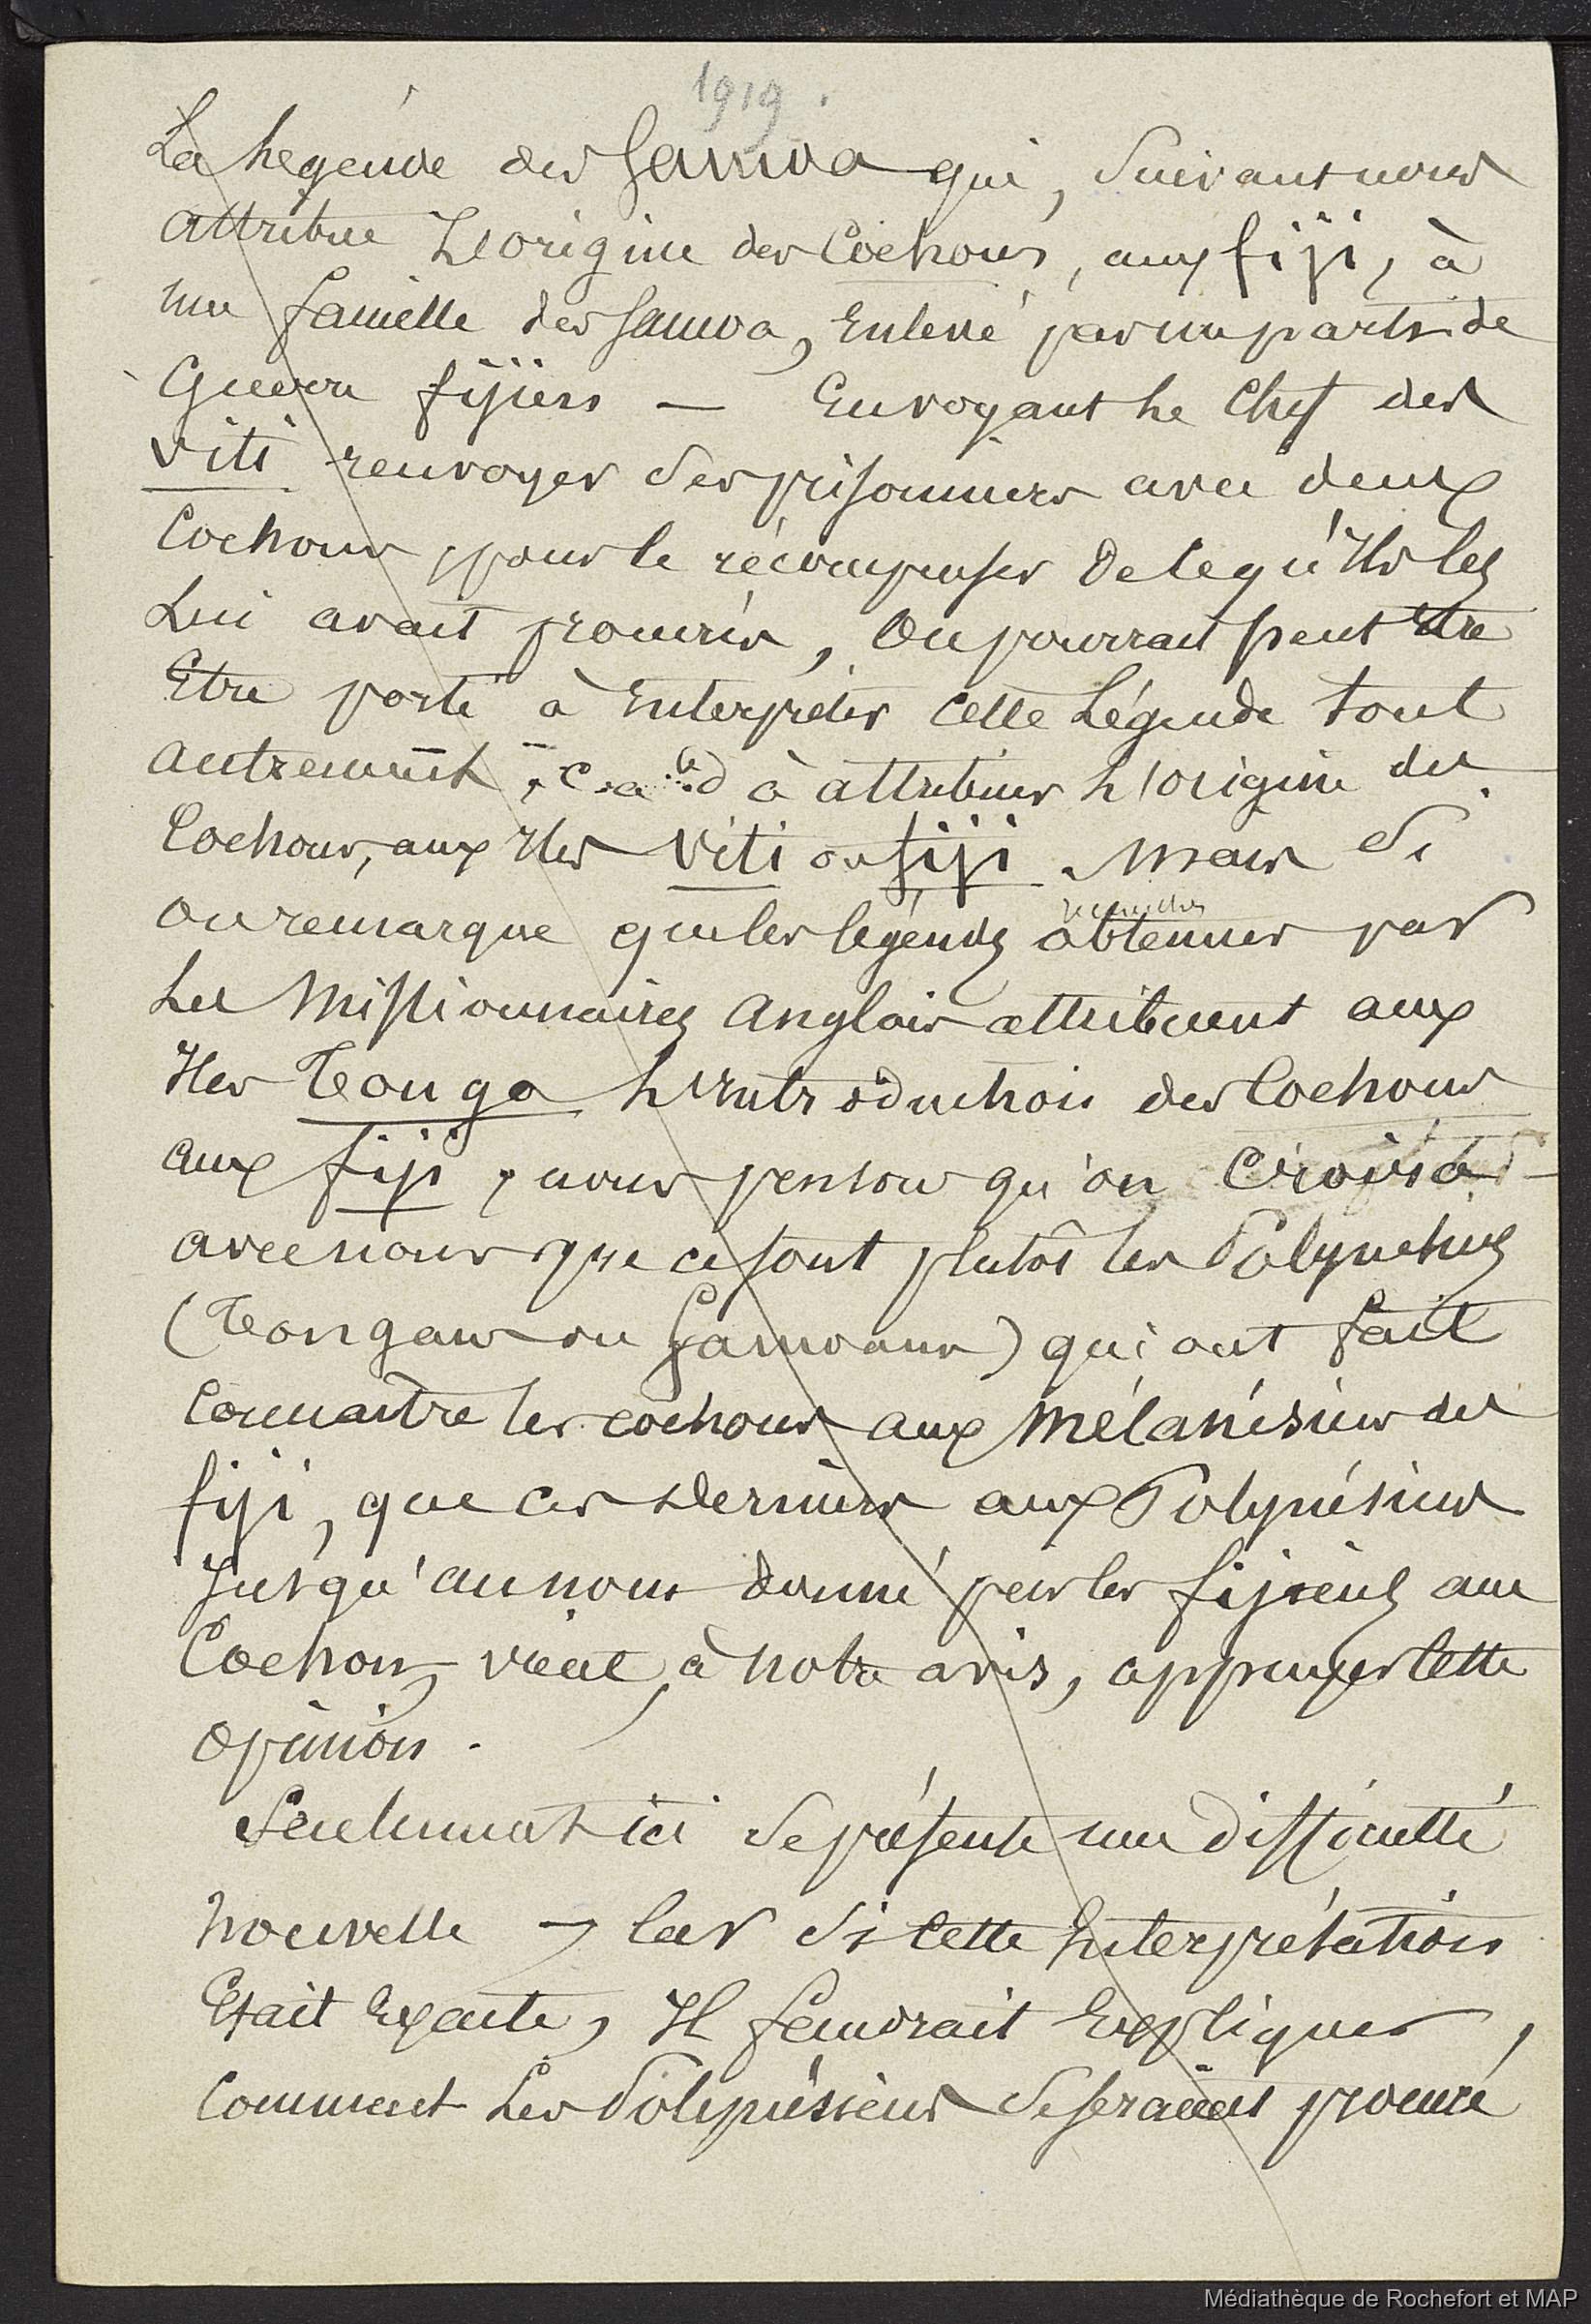 1919.
La Légende des Samoa qui, suivant nous
attribue L'origine des Cochons, aux fiji, à
une famille des Samoa, Enlevé par un parti de
Guerre fijiens — En voyant Le Chef des
Viti renvoyer ses prisonniers avec deux
Cochons, pour le récompenser de ce qu'Ils les
Lui avait procurés, On pourrait peut être
Etre porté à Interpréter cette Légende tout
autrement, c.a.d à attribuer L'origine des
Cochons, aux Iles Viti ou fiji. Mais si
on remarque que les légendes obtenues par
Les Missionnaires Anglais attribuent aux
Iles Tonga L'Introduction des Cochons
aux fiji, nous pensons qu'on croira
avec nous que ce sont plutôt les Polynésiens
(Tongans ou Samoans) qui ont fait
Connaître les cochons aux Mélanésiens des
fiji, que ces derniers aux Polynésiens
Jusqu'au nom donné par les fijiens au
Cochon, vient, à notre avis, appuyer cette
opinion.
Seulement ici se présente une difficulté
nouvelle — Car si cette Interprétation
Etait Exacte, Il faudrait Expliquer,
Comment Les Polynésiens se seraient procuré
Médiathèque de Rochefort et MAP